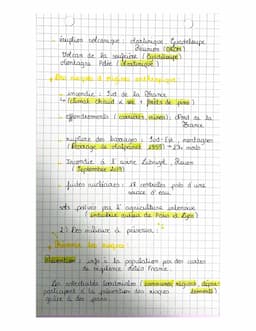 - éruption volcanique : Martinique, Guadeloupe
Réunion (DROM)
Volcan de la soufrière (Guadeloupe)
Montagne Pelée (Martinique)
- incendie : Sud de la France
↳ (climat chaud et sec + forêts de pins)
- effondrements : (carrières, mines) : Nord de la
France
- rupture des barrages : Sud-Est, montagnes
(Barrage de Malpasset 1959) → 423 morts
Incendie à l'usine Lubrizol, Rouen
(Septembre 2019)
- fuites nucléaires : 18 centrales près d'une
source d'eau.
sols pollués par l'agriculture intensive
(industrie autour de Paris et Lyon)
2) Des milieux à préserver :
Prévenir les risques
Prévention : info à la population par des cartes
de vigilance Météo France
Les collectivités territoriales (communes, régions, dépar-
tements)
participent à la prévention des risques
grâce à des plans